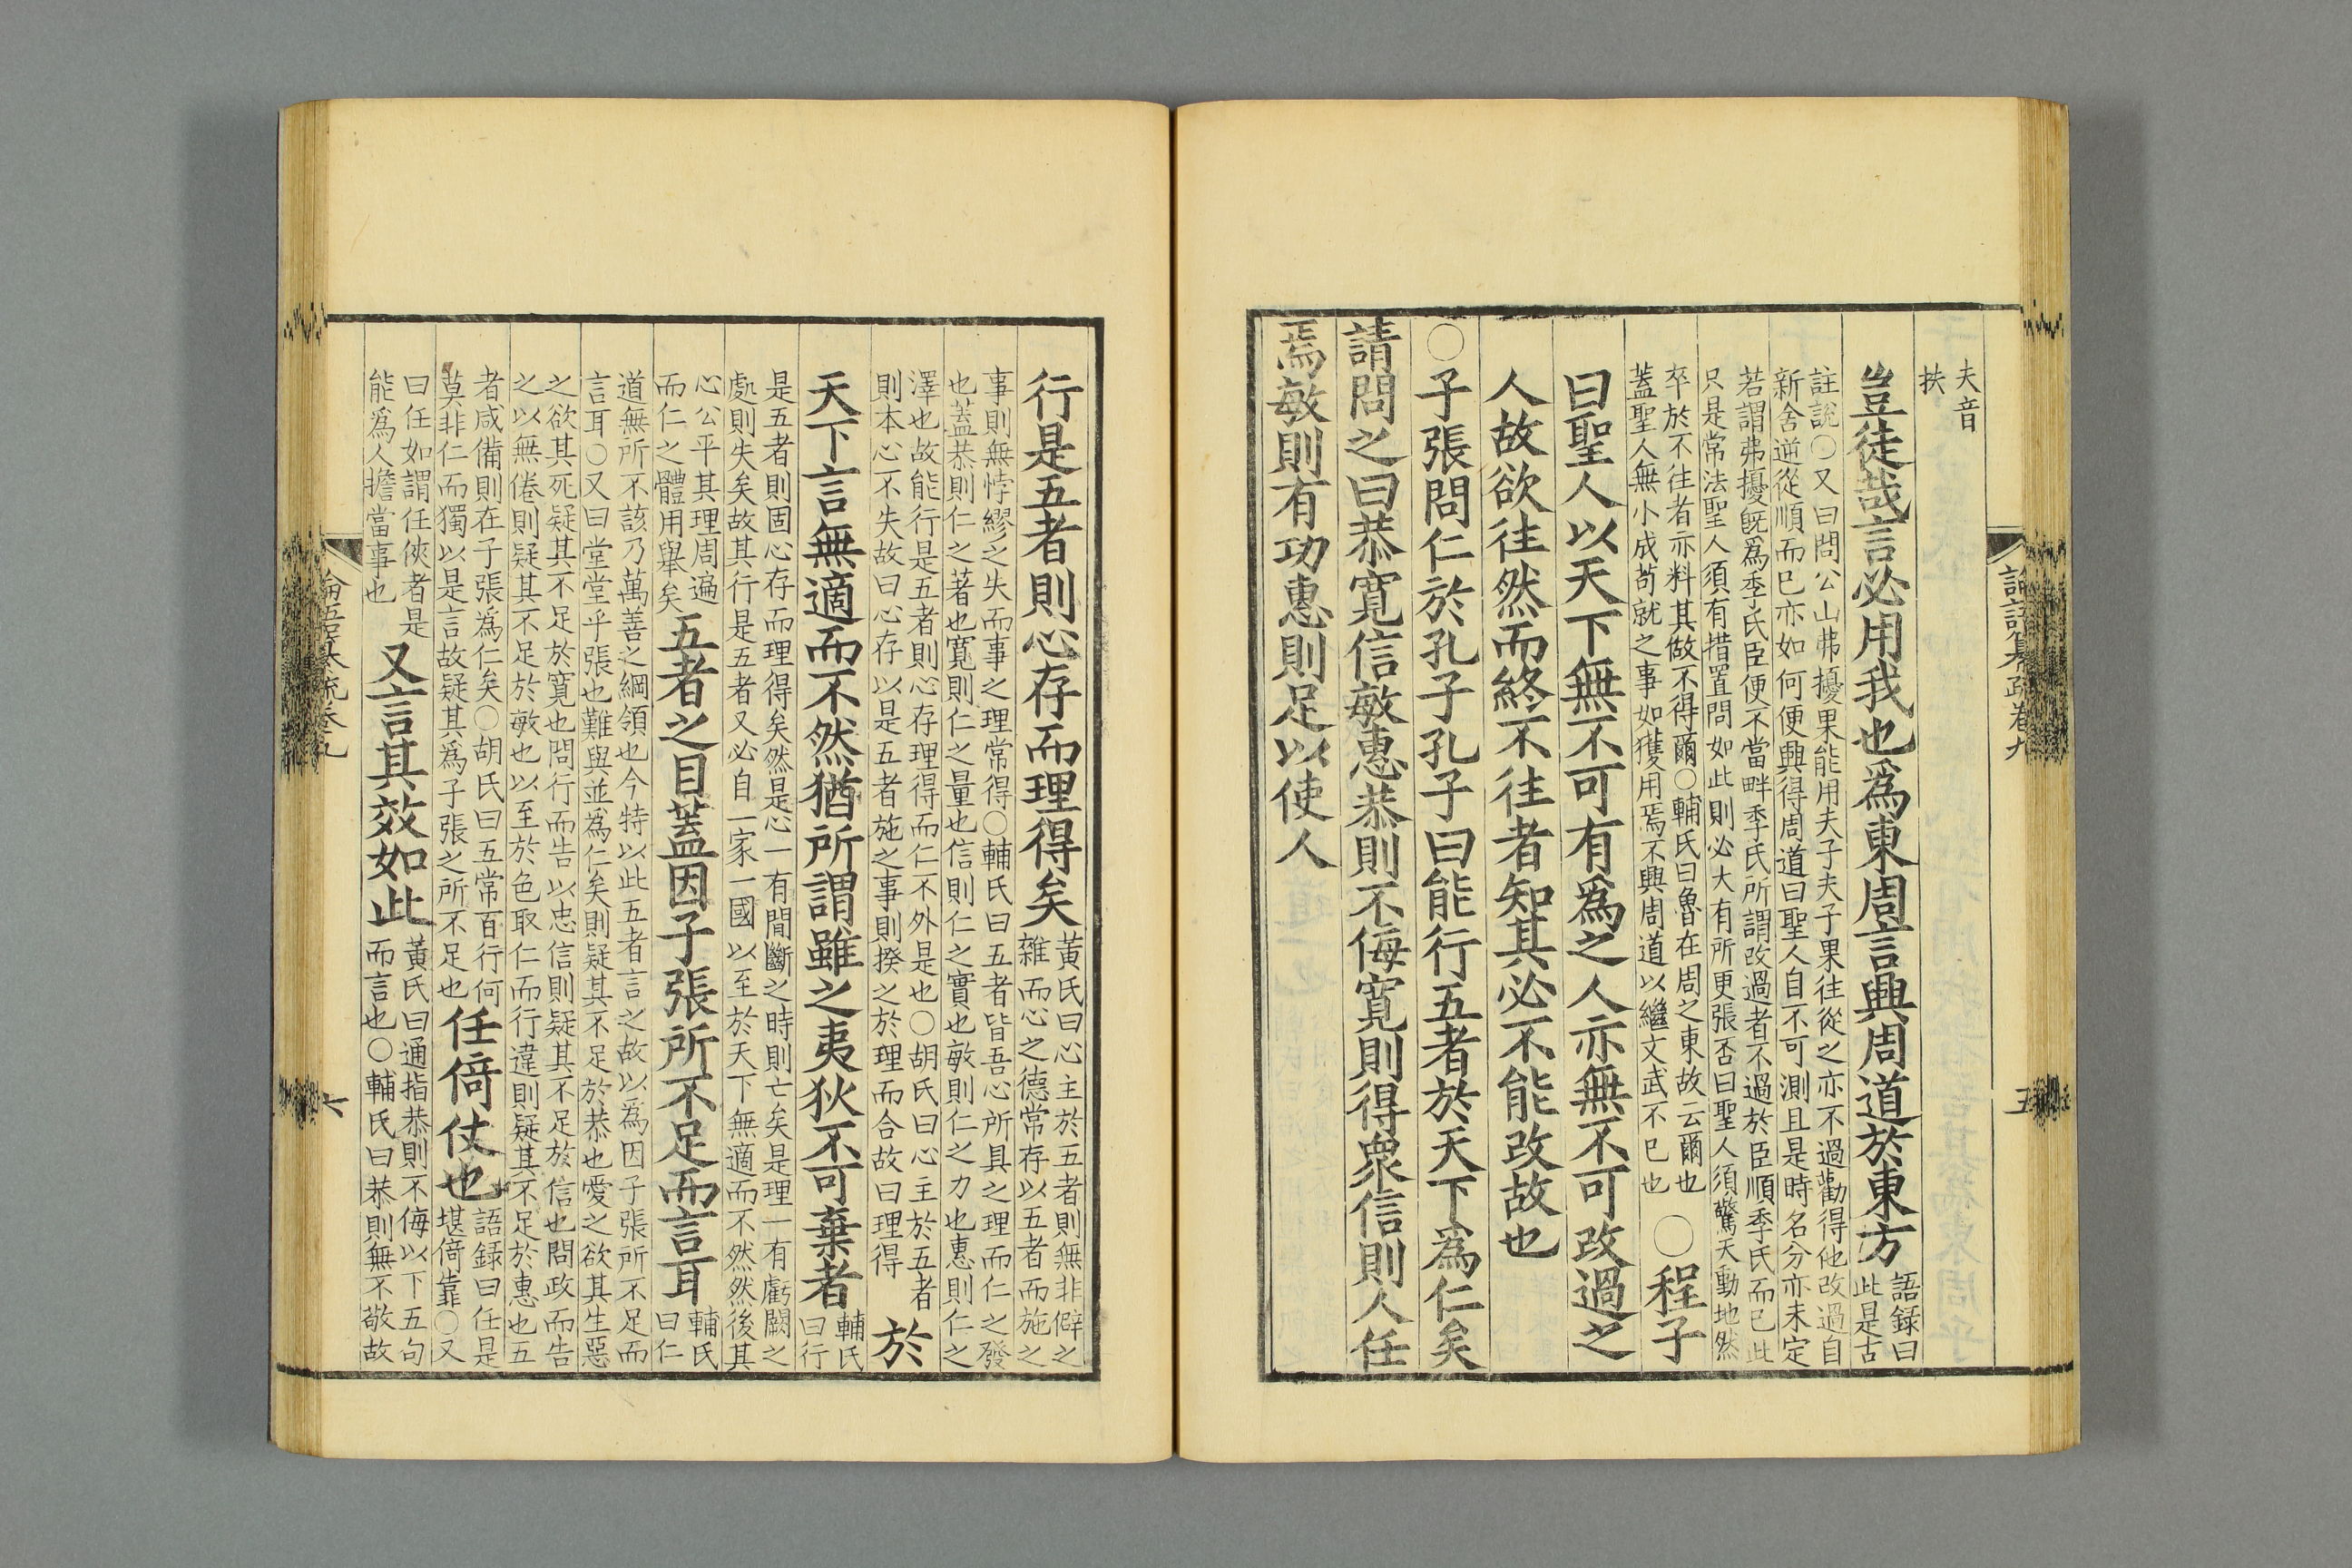 夫音
扶
豈徒哉言必用我也爲東周言興周道於東方
語録曰
此是古
註說○又曰問公山弗擾果能用夫子夫子果往從之亦不過勸得他改過自
新舍逆從順而已亦如何便興得周道曰聖人自不可測且是時名分亦未定
若謂弗擾旣爲季氏臣便不當畔季氏所謂改過者不過於臣順季氏而已此
只是常法聖人須有措置問如此則必大有所更張否曰聖人須驚天動地然
卒於不往者亦料其做不得爾○輔氏曰魯在周之東故云爾也
蓋聖人無小成苟就之事如獲用焉不興周道以繼文武不已也
○程子
曰聖人以天下無不可有爲之人亦無不可改過之
人故欲往然而終不往者知其必不能改故也
○子張問仁於孔子孔子曰能行五者於天下爲仁矣
請問之曰恭寬信敏惠恭則不侮寬則得衆信則人任
焉敏則有功惠則足以使人
論語纂疏卷九
五
行是五者則心存而理得矣
黃氏曰心主於五者則無非僻之
雜而心之德常存以五者而施之
事則無悖繆之失而事之理常得○輔氏曰五者皆吾心所具之理而仁之發
也蓋恭則仁之著也寬則仁之量也信則仁之實也敏則仁之力也惠則仁之
澤也故能行是五者則心存理得而仁不外是也○胡氏曰心主於五者
則本心不失故曰心存以是五者施之事則揆之於理而合故曰理得
於
天下言無適而不然猶所謂雖之夷狄不可棄者
輔氏
曰行
是五者則固心存而理得矣然是心一有間斷之時則亡矣是理一有虧闕之
處則失矣故其行是五者又必自一家一國以至於天下無適而不然然後其
心公平其理周遍
而仁之體用舉矣
五者之目蓋因子張所不足而言耳
輔氏
曰仁
道無所不該乃萬善之綱領也今特以此五者言之故以爲因子張所不足而
言耳○又曰堂堂乎張也難與並為仁矣則疑其不足於恭也愛之欲其生惡
之欲其死疑其不足於寬也問行而告以忠信則疑其不足於信也問政而告
之以無倦則疑其不足於敏也以至於色取仁而行違則疑其不足於惠也五
者咸備則在子張爲仁矣○胡氏曰五常百行何
莫非仁而獨以是言故疑其爲子張之所不足也
任倚仗也
語録曰任是
堪倚靠○又
曰任如謂任俠者是
能爲人擔當事也
又言其效如此
黃氏曰通指恭則不侮以下五句
而言也○輔氏曰恭則無不敬故
論語纂疏卷九
六